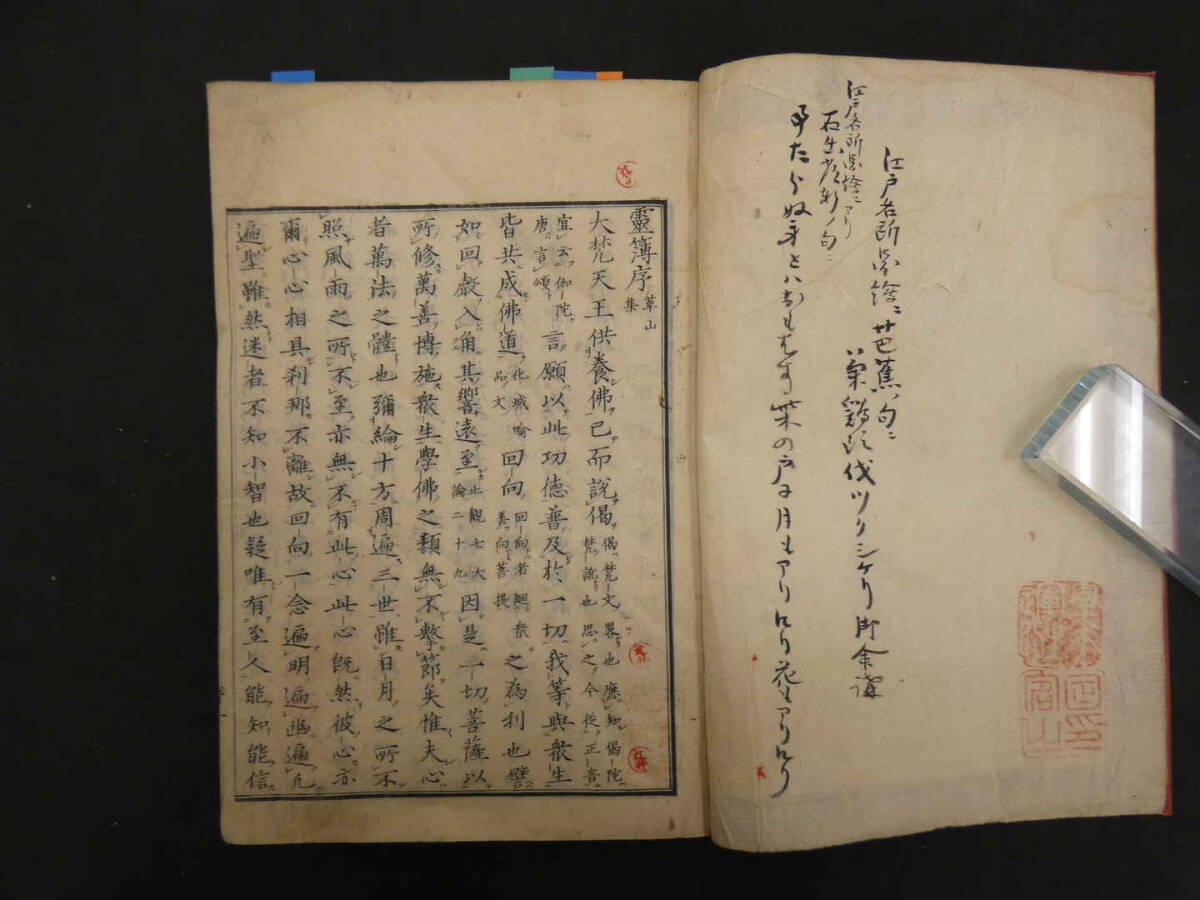 江戸名所圖繪ニ芭蕉ノ句ニ
菜鶏頭伐ツクシケリ御命講
江戸名所圖繪ニアリ
石出常軒ノ句ニ
身とハおもはす柴の戸に月もアリけり花もアリけり
靈簿序草山集
大梵天王供養佛已而說偈偈梵文畧也應知偈陀梵詭也思之今從正音
宜云伽陀唐言頌言願以此功德普及於一切我等與衆生
皆共成佛道化城喻品文回向回向者廻衆善向菩提之為利也譬
如回聲入角其響遠至止觀七大論二十九因是一切菩薩以
所修萬善博施衆生學佛之類無不擊節矣惟夫心
者萬法之體也彌綸十方周遍三世雖日月之所不
照風雨之所不至亦無不有此心此心既然彼心亦
爾心心相具刹那不離故回向一念遍明遍幽遍凡
遍聖雖然迷者不知小智也疑唯有至人能知能信